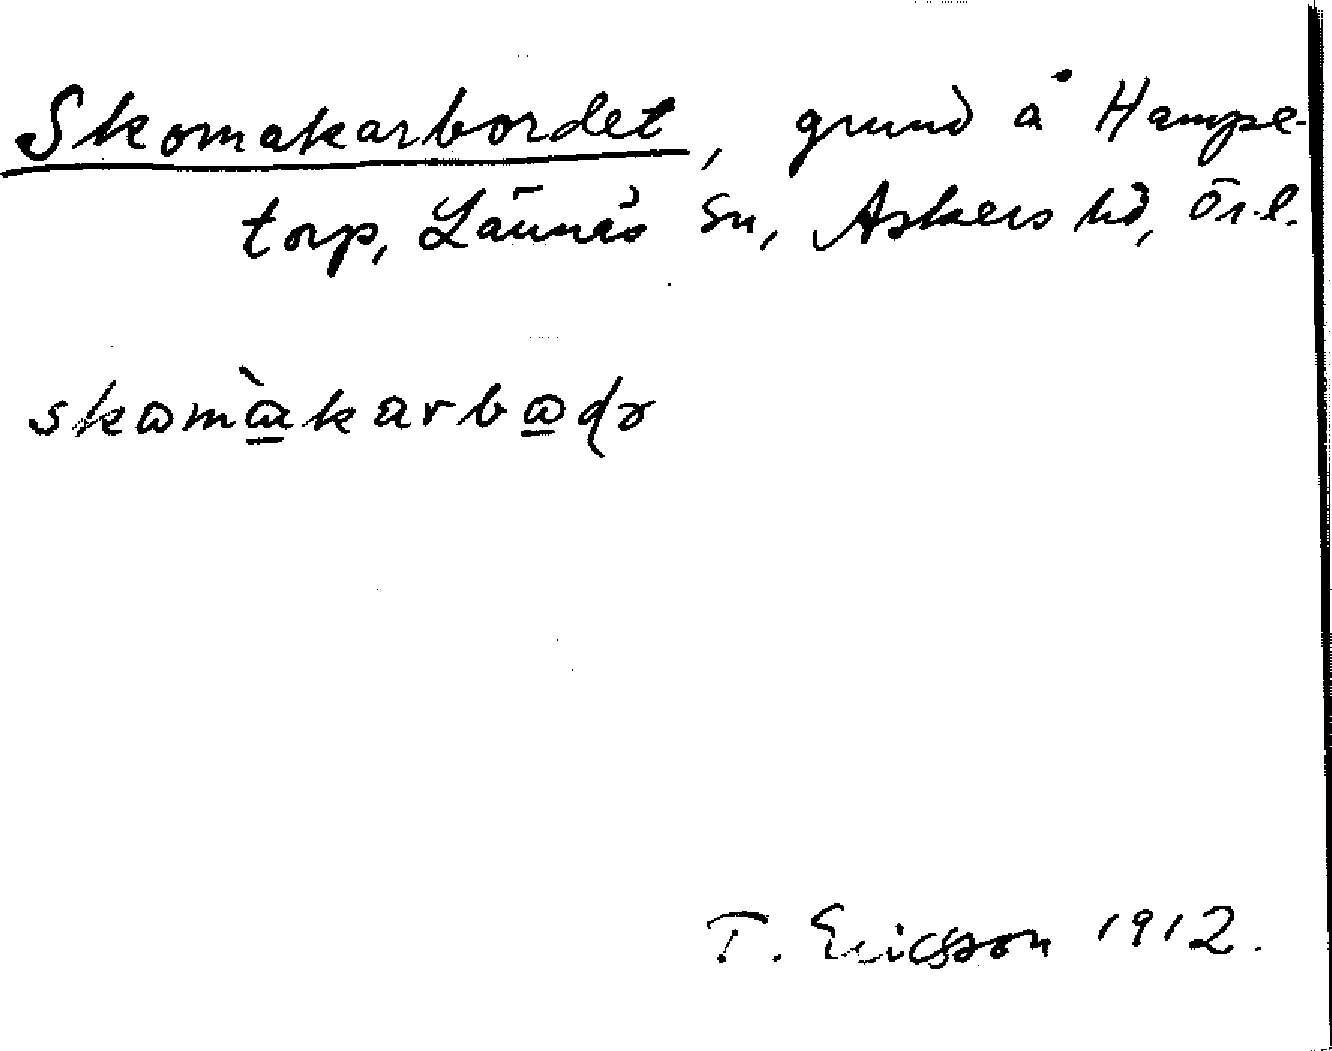 Skomakarbordet, grund å Hampe-
torp, Lännäs sn, Askers hd, Ör.l.
skɷmɑ̲̀karbɷ̲ḍɘ
T. Ericsson 1912.